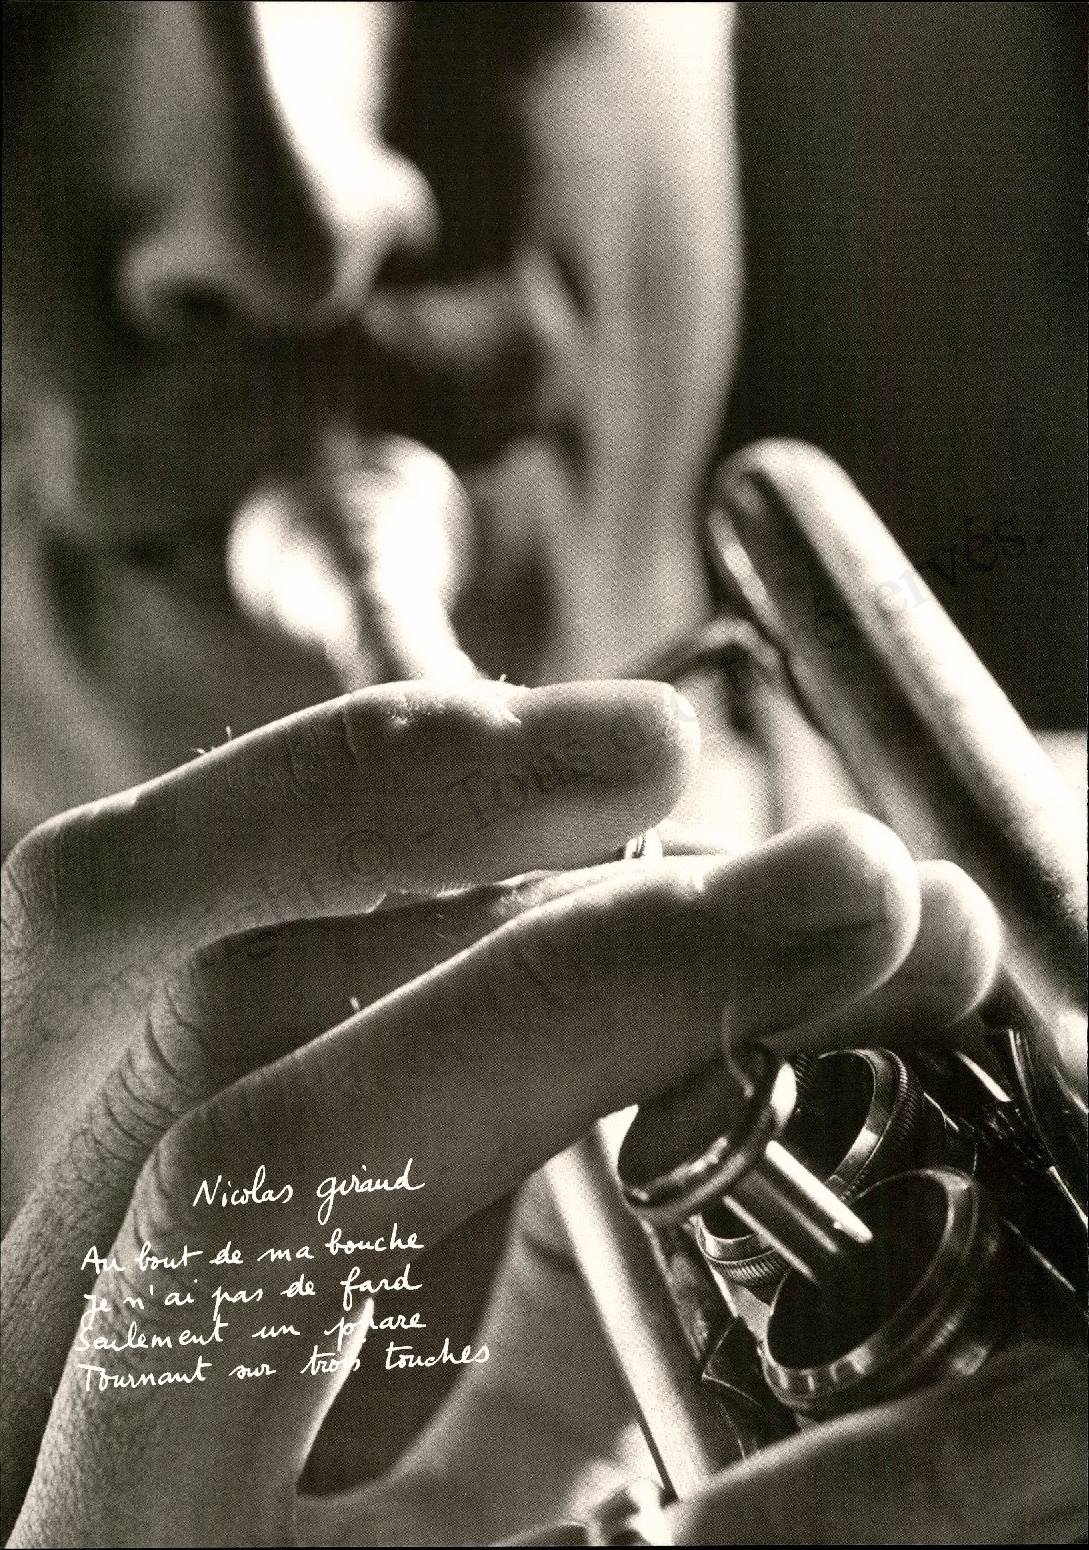 Nicolas giraud
Au bout de ma bouche
Je n'ai pas de fard
Seulement un phare
Tournant sur trois touches
© – Tous